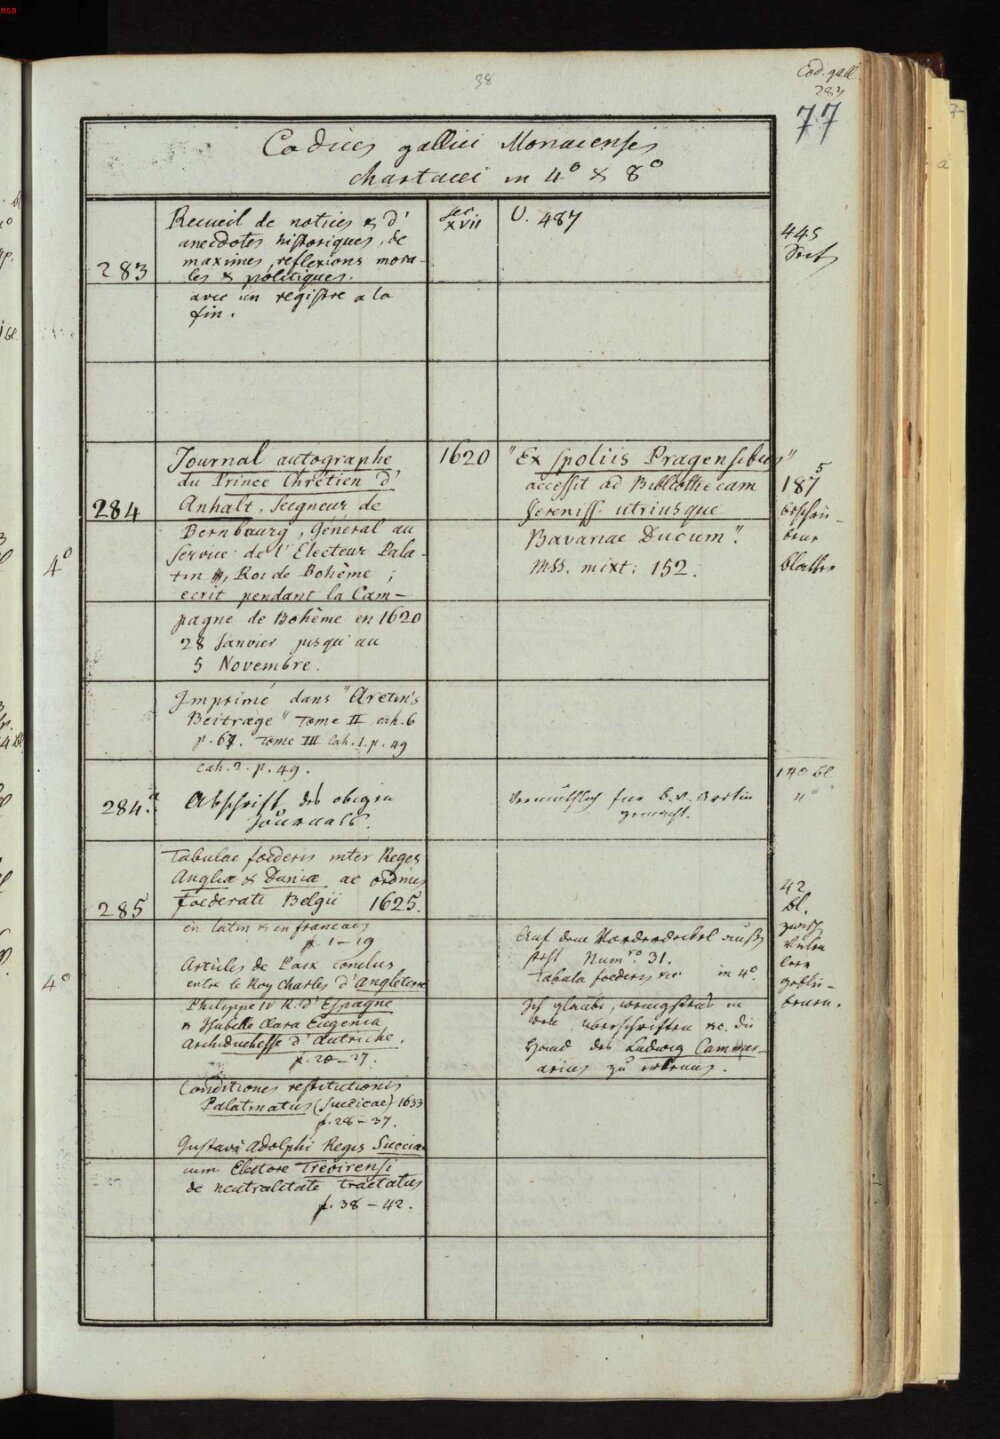 38
Cod. gall
283
77
Codices gallici Monacenses
chartacei in 4° & 8°
283
Recueil de notices & d'
anecdotes historiques, de
maximes, reflexions mora-
les & politiques.
avec un registre a la
fin.
sec
XVII
U. 487
445
Seit
4°
284
Journal autographe
du Prince Chrétien d'
Anhalt, Seigneur de
Bernbourg, Général au
Service de l'Electeur Pala-
tin, Roi de Bohème;
ecrit pendant la Cam-
pagne de Bohème en 1620
28 Janvier jusqu'au
5 Novembre.
Imprimé dans "Aretin's
Beitræge" Tome II cah. 6
p. 67. Tome III Cah. 1. p. 49
cah. 2. p. 49.
1620
"Ex spoliis Pragensibus"
accessit ad Bibliothecam
Sereniss. utriusque
Bavariae Ducum".
Mss. mixt: 152.
187
5
beschrie-
bene
Blætter
284.a
Abschrift des obigen
Journals.
Vermuthlich für B. v. Aretin
gemacht.
140 bl
4°
4°
285
Tabulae foederis inter Reges
Angliæ & Daniæ ac ordines
foederati Belgii 1625.
en latin & en francais
p. 1–19
Articles de Paix conclus
entre le Roy Charles d'Angleterre
Philippe IV R. d'Espagne
& Isabelle Clara Eugenia
Archiduchesse d'Autriche.
p. 20–27.
Conditiones restitutionis
Palatinatus (Suecicae) 1633
p. 28–37.
Gustavi Adolphi Regis Sueciae
cum Electore Trevirensi
de neutralitate tractatus
p. 38–42.
Auf dem Vorderdeckel außen
steht Numro. 31.
Tabula foederis &c in 4°
Ich glaube, wenigstens in
den Überschriften &c. die
Hand des Ludwig Cammer-
arius zu erkennen.
42
bl.
leer
geblie-
benen.